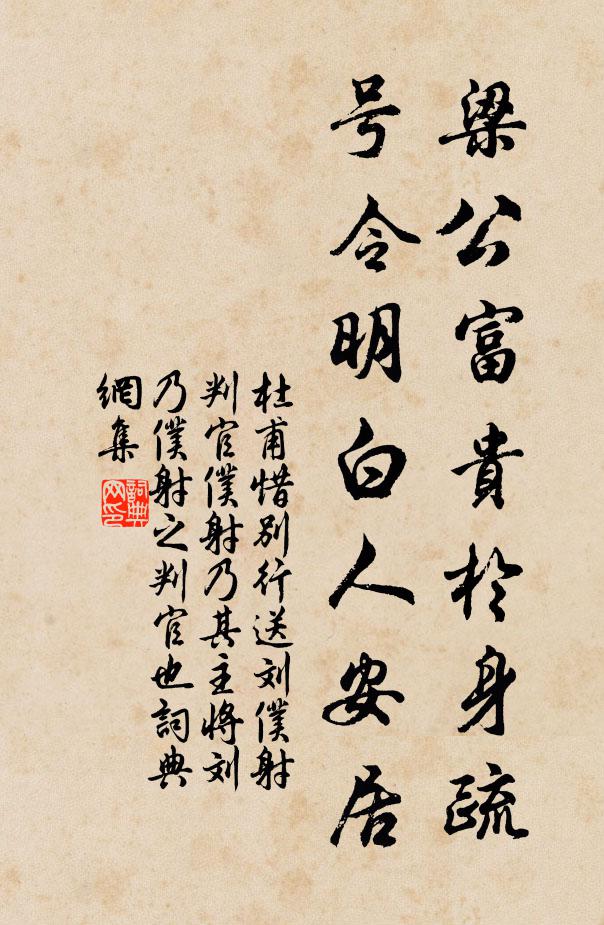 梁公富貴於身疏
号令明白人安居
杜甫惜别行送刘僕射
判官僕射乃其主將刘
乃僕射之判官也詞典
網集
詞典網印